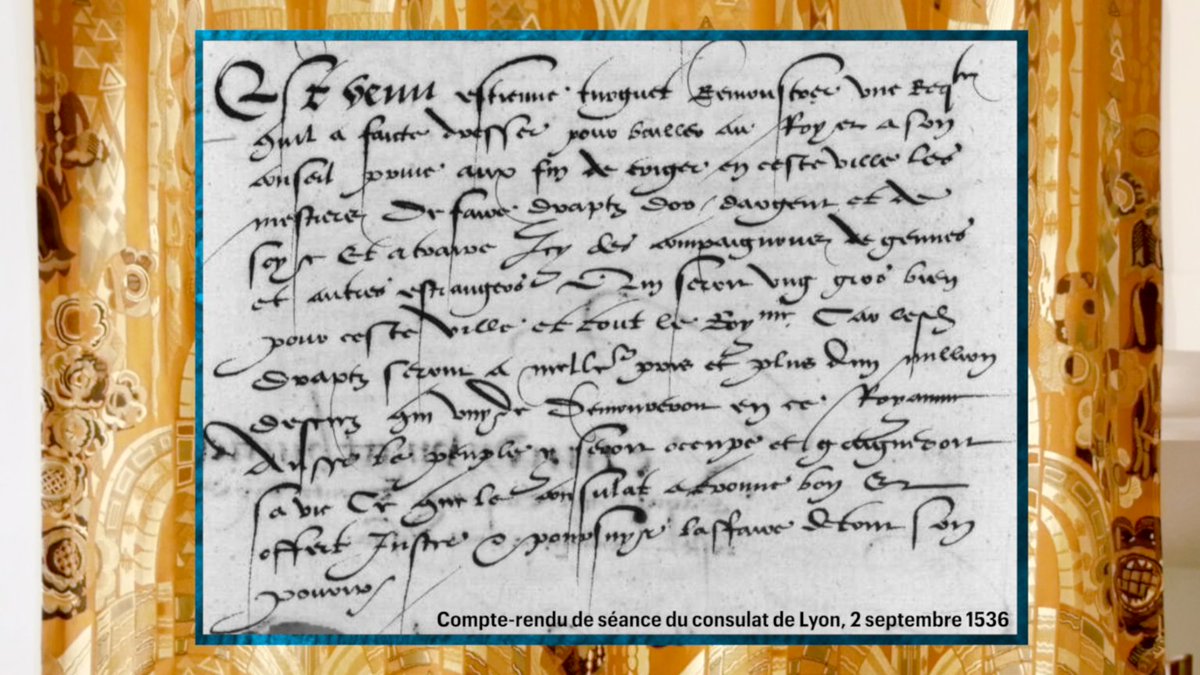 Est venu estienne turquet Remonstrer une Reqte
quil a faicte dresser pour bailler au Roy et a son
conseil prive aux fin de eriger en ceste ville les
mestiers De faire draptz dor dargent et de
soye Et attraire Icy des compaignons de gennes
et autres estrangers Qui seroit ung gros bien
pour ceste ville et tout le Roy me Car lesd
Draptz seront a melleur pris et plus dun million
descuz qui demoureront en ce Royaume
Aussi le peuple y seroit occupe et gaigneroit
sa vie Ce que le consulat a trouve bon Et
offert poursuyvre laffaire de tout son
pouvoir
Compte-rendu de séance du consulat de Lyon, 2 septembre 1536